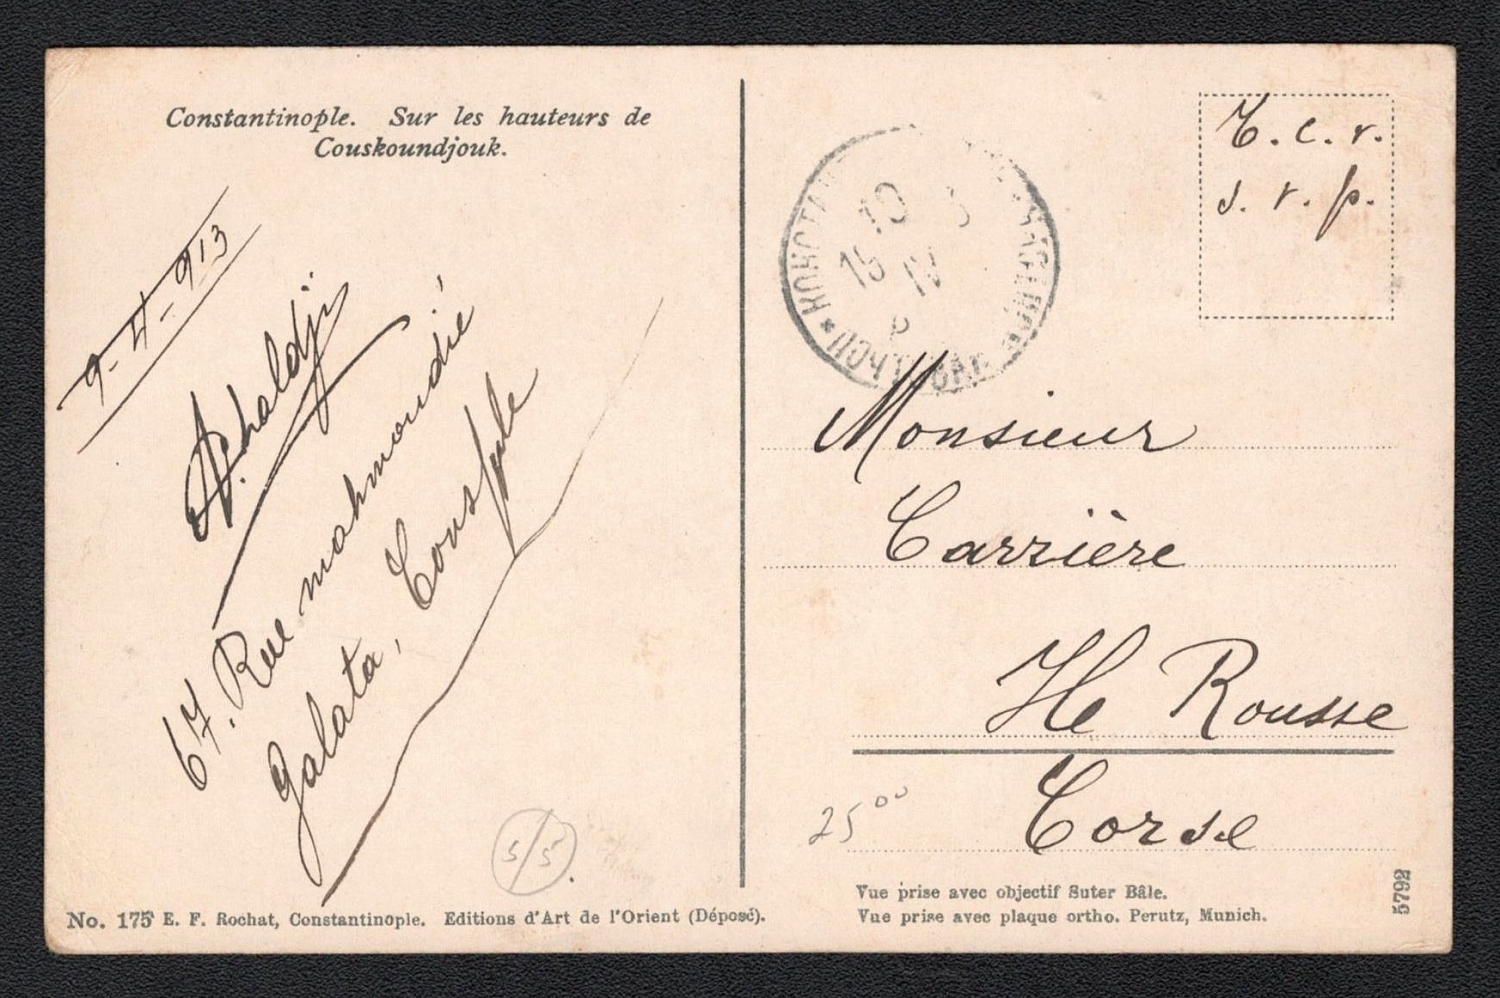 Constantinople. Sur les hauteurs de
Couskoundjouk.
9-4-913
67. Rue mahmoudié
Galata, Conspple
T. C. V.
s. v. p.
10
15 IV
Monsieur
Carrière
Ile Rousse
Corse
25 00
5/5
No. 175 E. F. Rochat, Constantinople. Editions d'Art de l'Orient (Déposé).
Vue prise avec objectif Suter Bâle.
Vue prise avec plaque ortho. Perutz, Munich.
5792